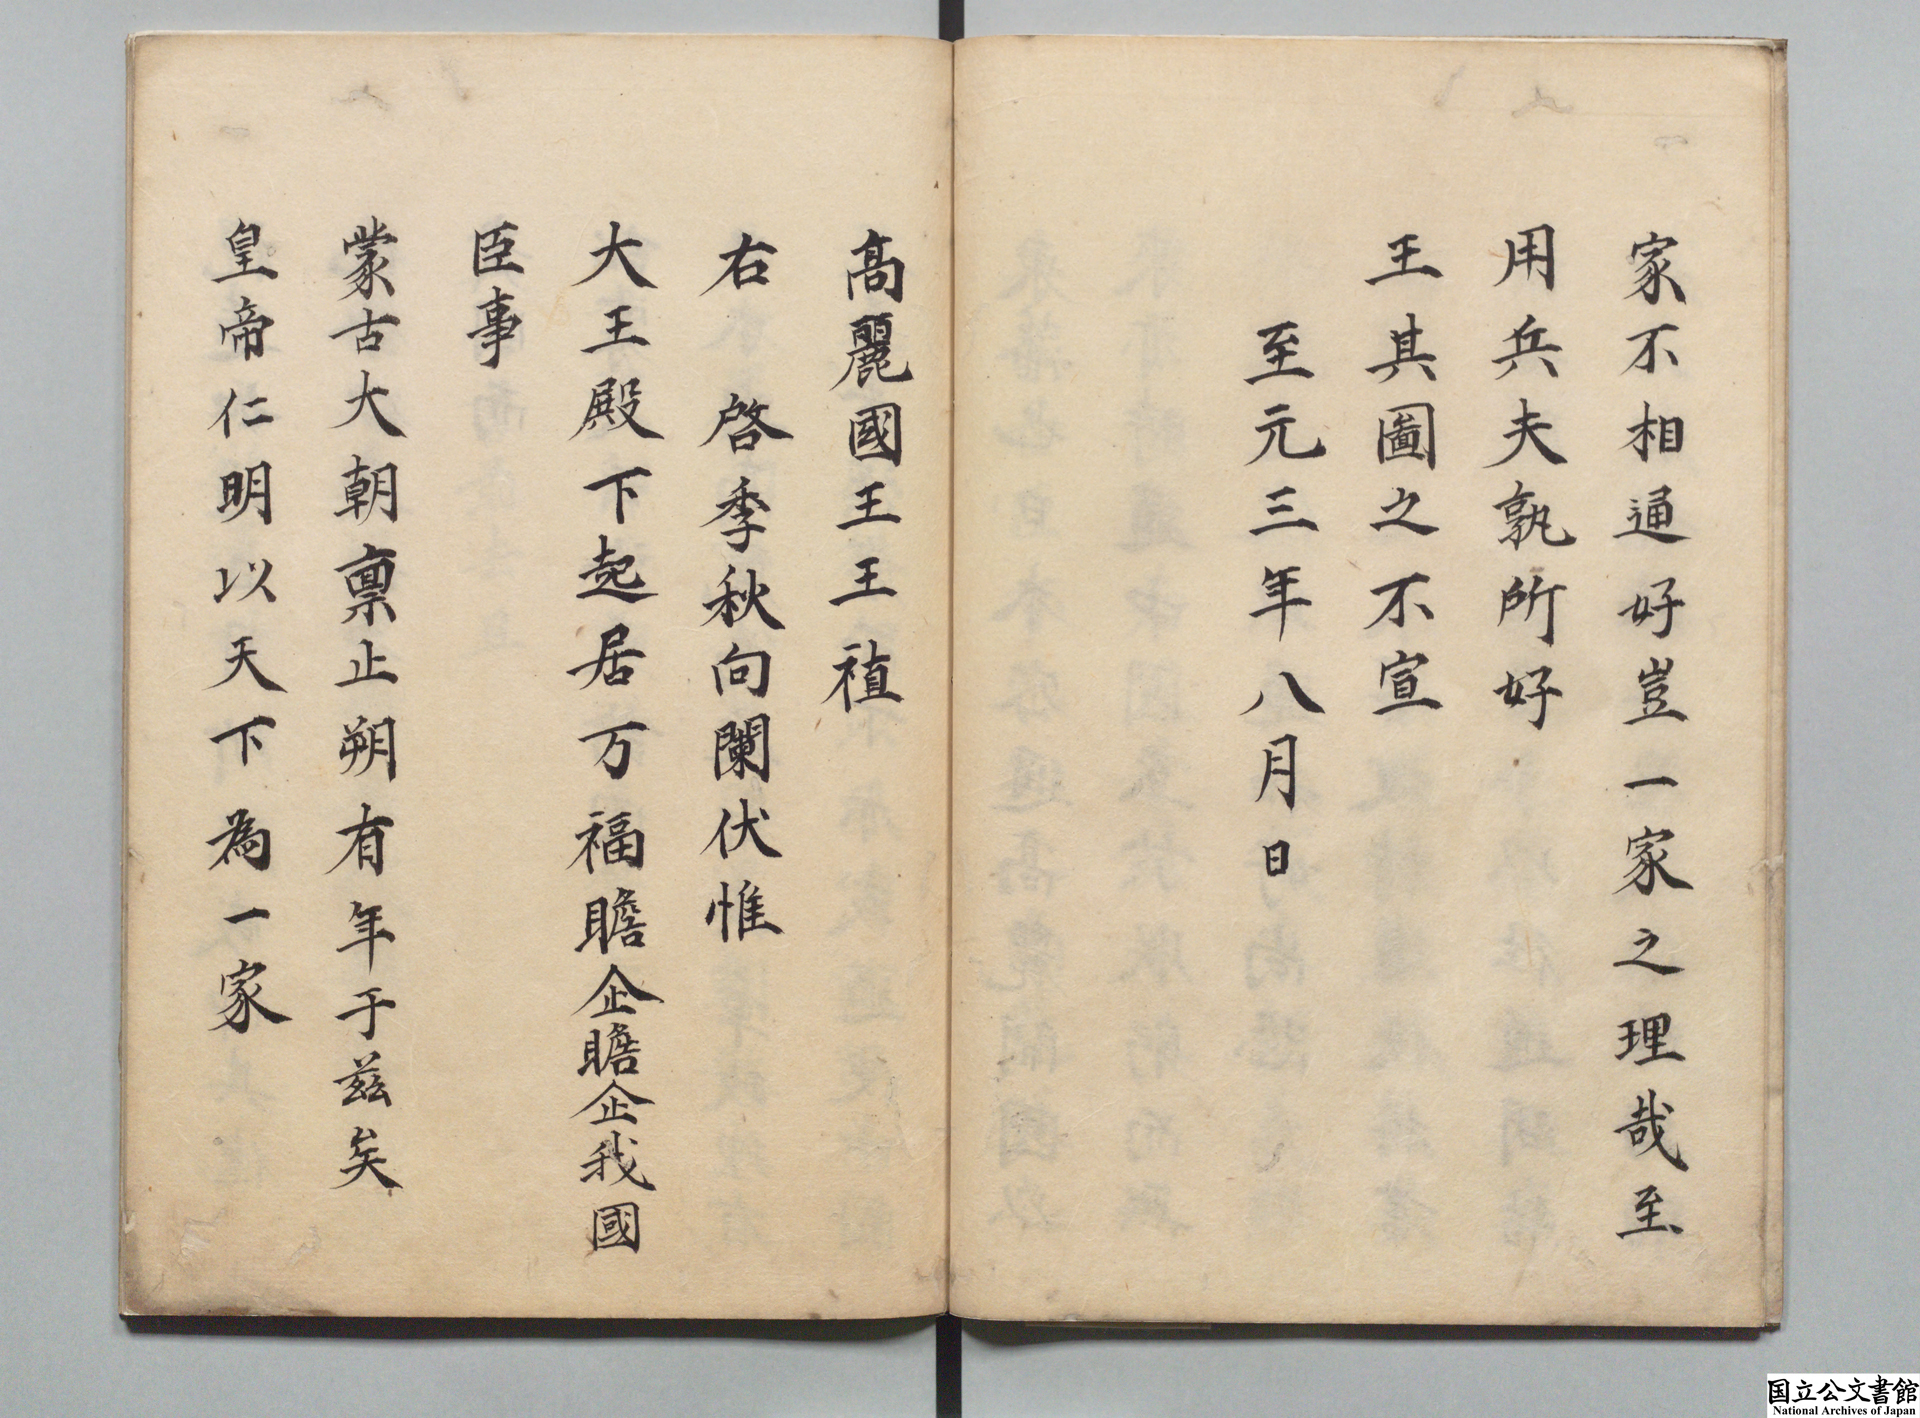 家不相通好豈一家之理哉至
用兵夫孰所好
王其圖之不宣
至元三年八月日
高麗國王王禃
右啓季秋向闌伏惟
大王殿下起居万福瞻企瞻企我國
臣事
蒙古大朝禀止朔有年于茲矣
皇帝仁明以天下為一家
国立公文書館
National Archives of Japan